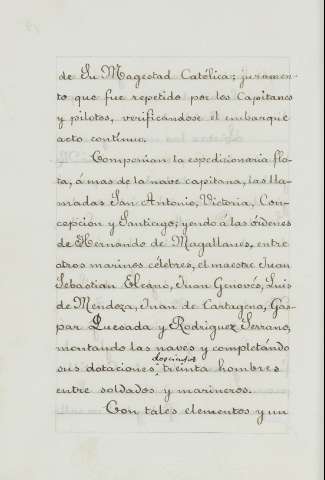 de Su Magestad Católica; juramen-
to que fue repetido por los Capitanes
y pilotos, verificándose el embarque
acto contínuo.
Componían la espedicionaria flo-
ta, á mas de la nave capitana, las lla-
madas San Antonio, Victoria, Con-
cepcion y Santiago; yendo á las órdenes
de Hernando de Magallanes, entre
otros marinos célebres, el maestre Juan
Sebastian Elcano, Juan Genovés, Luis
de Mendoza, Juan de Cartagena, Gas-
par Quesada y Rodriguez Serrano,
montando las naves y completando
sus dotaciones, doscientos treinta hombres
entre soldados y marineros.
Con tales elementos y un